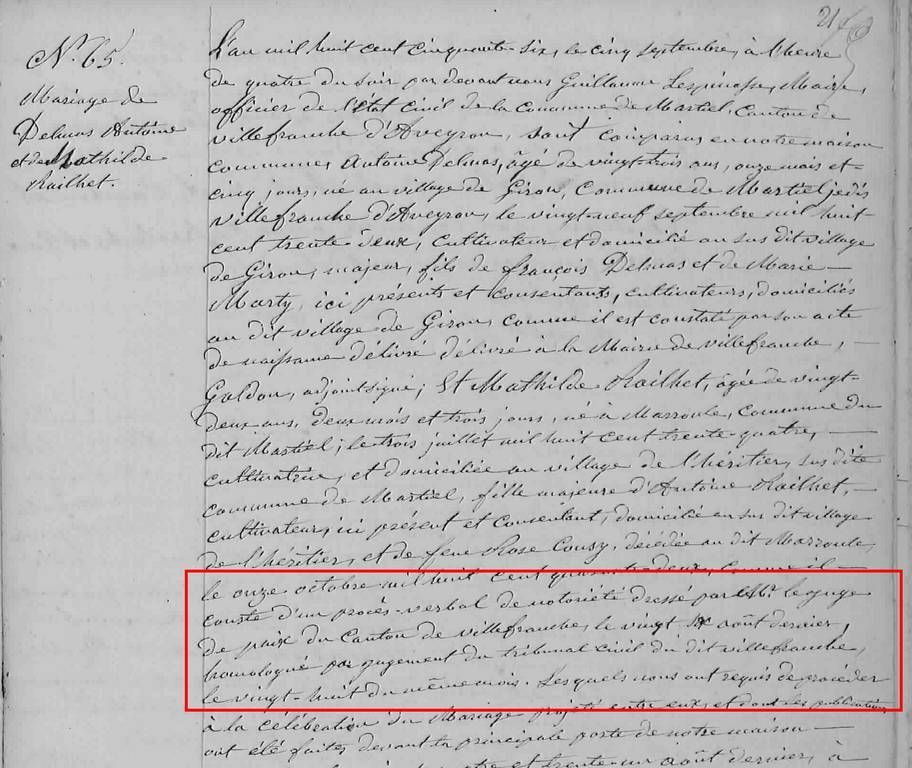 N.° 65.
Mariage de
Delmas Antoine
et de Mathilde
Railhet.
L'an mil huit cent cinquante-six, le cinq septembre, à l'heure
de quatre du soir par devant nous Guillaume Lespinasse, Maire,
officier de l'état civil de la Commune de Martiel, Canton de
villefranche d'Aveyron, sont comparus en notre maison
commune, Antoine Delmas, âgé de vingt-trois ans, onze mois et
cinq jours, né au village de Girou, Commune de Martiel
villefranche d'Aveyron, le vingt-neuf septembre mil huit-
cent trente-deux, cultivateur et domicilié au sus dit village
de Girou, majeur, fils de françois Delmas et de Marie —
Marty, ici présents et consentants, cultivateurs, domiciliés
au dit village de Girou, comme il est constaté par son acte
de naissance délivré délivré à la Mairie de villefranche, —
Galdou, adjoint signé; Et Mathilde Railhet, âgée de vingt-
deux ans, deux mois et trois jours, né à Marroule, commune du
dit Martiel, le trois juillet mil huit cent trente-quatre, —
cultivatrice, et domiciliée au village de l'héritier, sus dite
commune de Martiel, fille majeure d'Antoine Railhet, —
cultivateur, ici présent et consentant, domicilié au sus dit village
de l'héritier, et de feue Rose Cousy, décédée au dit Marroule,
le onze octobre mil huit cent quarante-deux, comme il —
conste d'un procès-verbal de notoriété dressé par Mr. le juge
de paix du Canton de villefranche, le vingt six août dernier,
homologué par jugement du tribunal civil du dit villefranche,
le vingt-huit du même mois. Lesquels nous ont requis de procéder
à la célébration du Mariage projeté entre eux, et dont les publications
ont été faites devant la principale porte de notre maison —
et trente-un août dernier, à